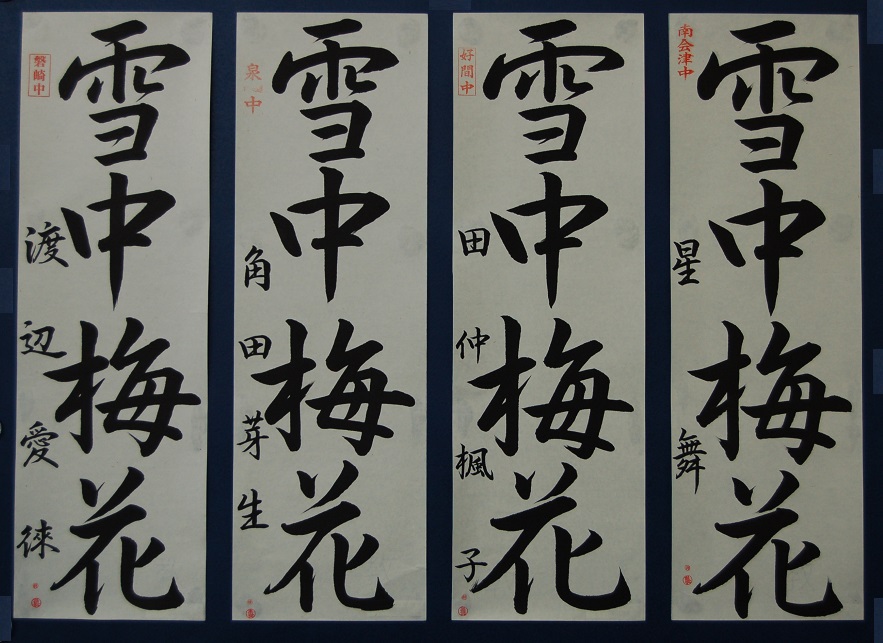 雪中梅花
南会津中
星舞
雪中梅花
好間中
田仲楓子
雪中梅花
泉中
角田芽生
雪中梅花
磐崎中
渡辺愛徠